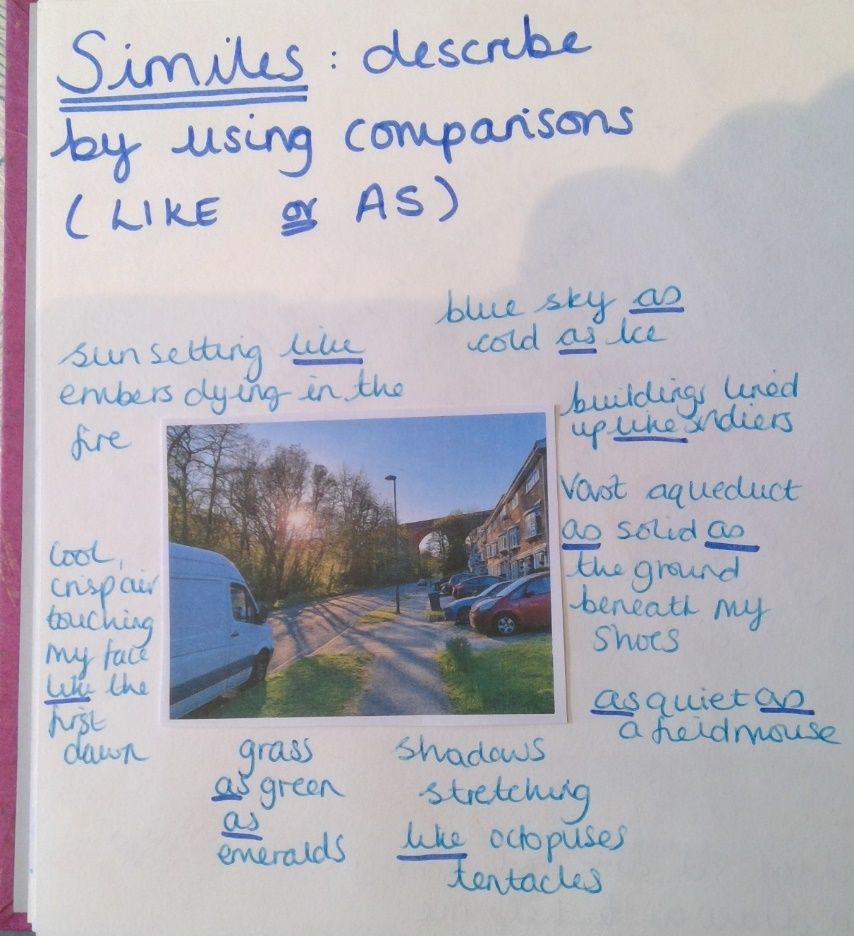 Similes: describe
by using comparisons
(LIKE or AS)
blue sky as
cold as Ice
sun setting like
embers dying in the
fire
buildings lined
up like soldiers
Vast aqueduct
as solid as
the ground
beneath my
shoes
Cool,
crisp air
touching
my face
like the
first
dawn
as quiet as
a fieldmouse
grass
as green
as
emeralds
shadows
stretching
like octopuses
tentacles